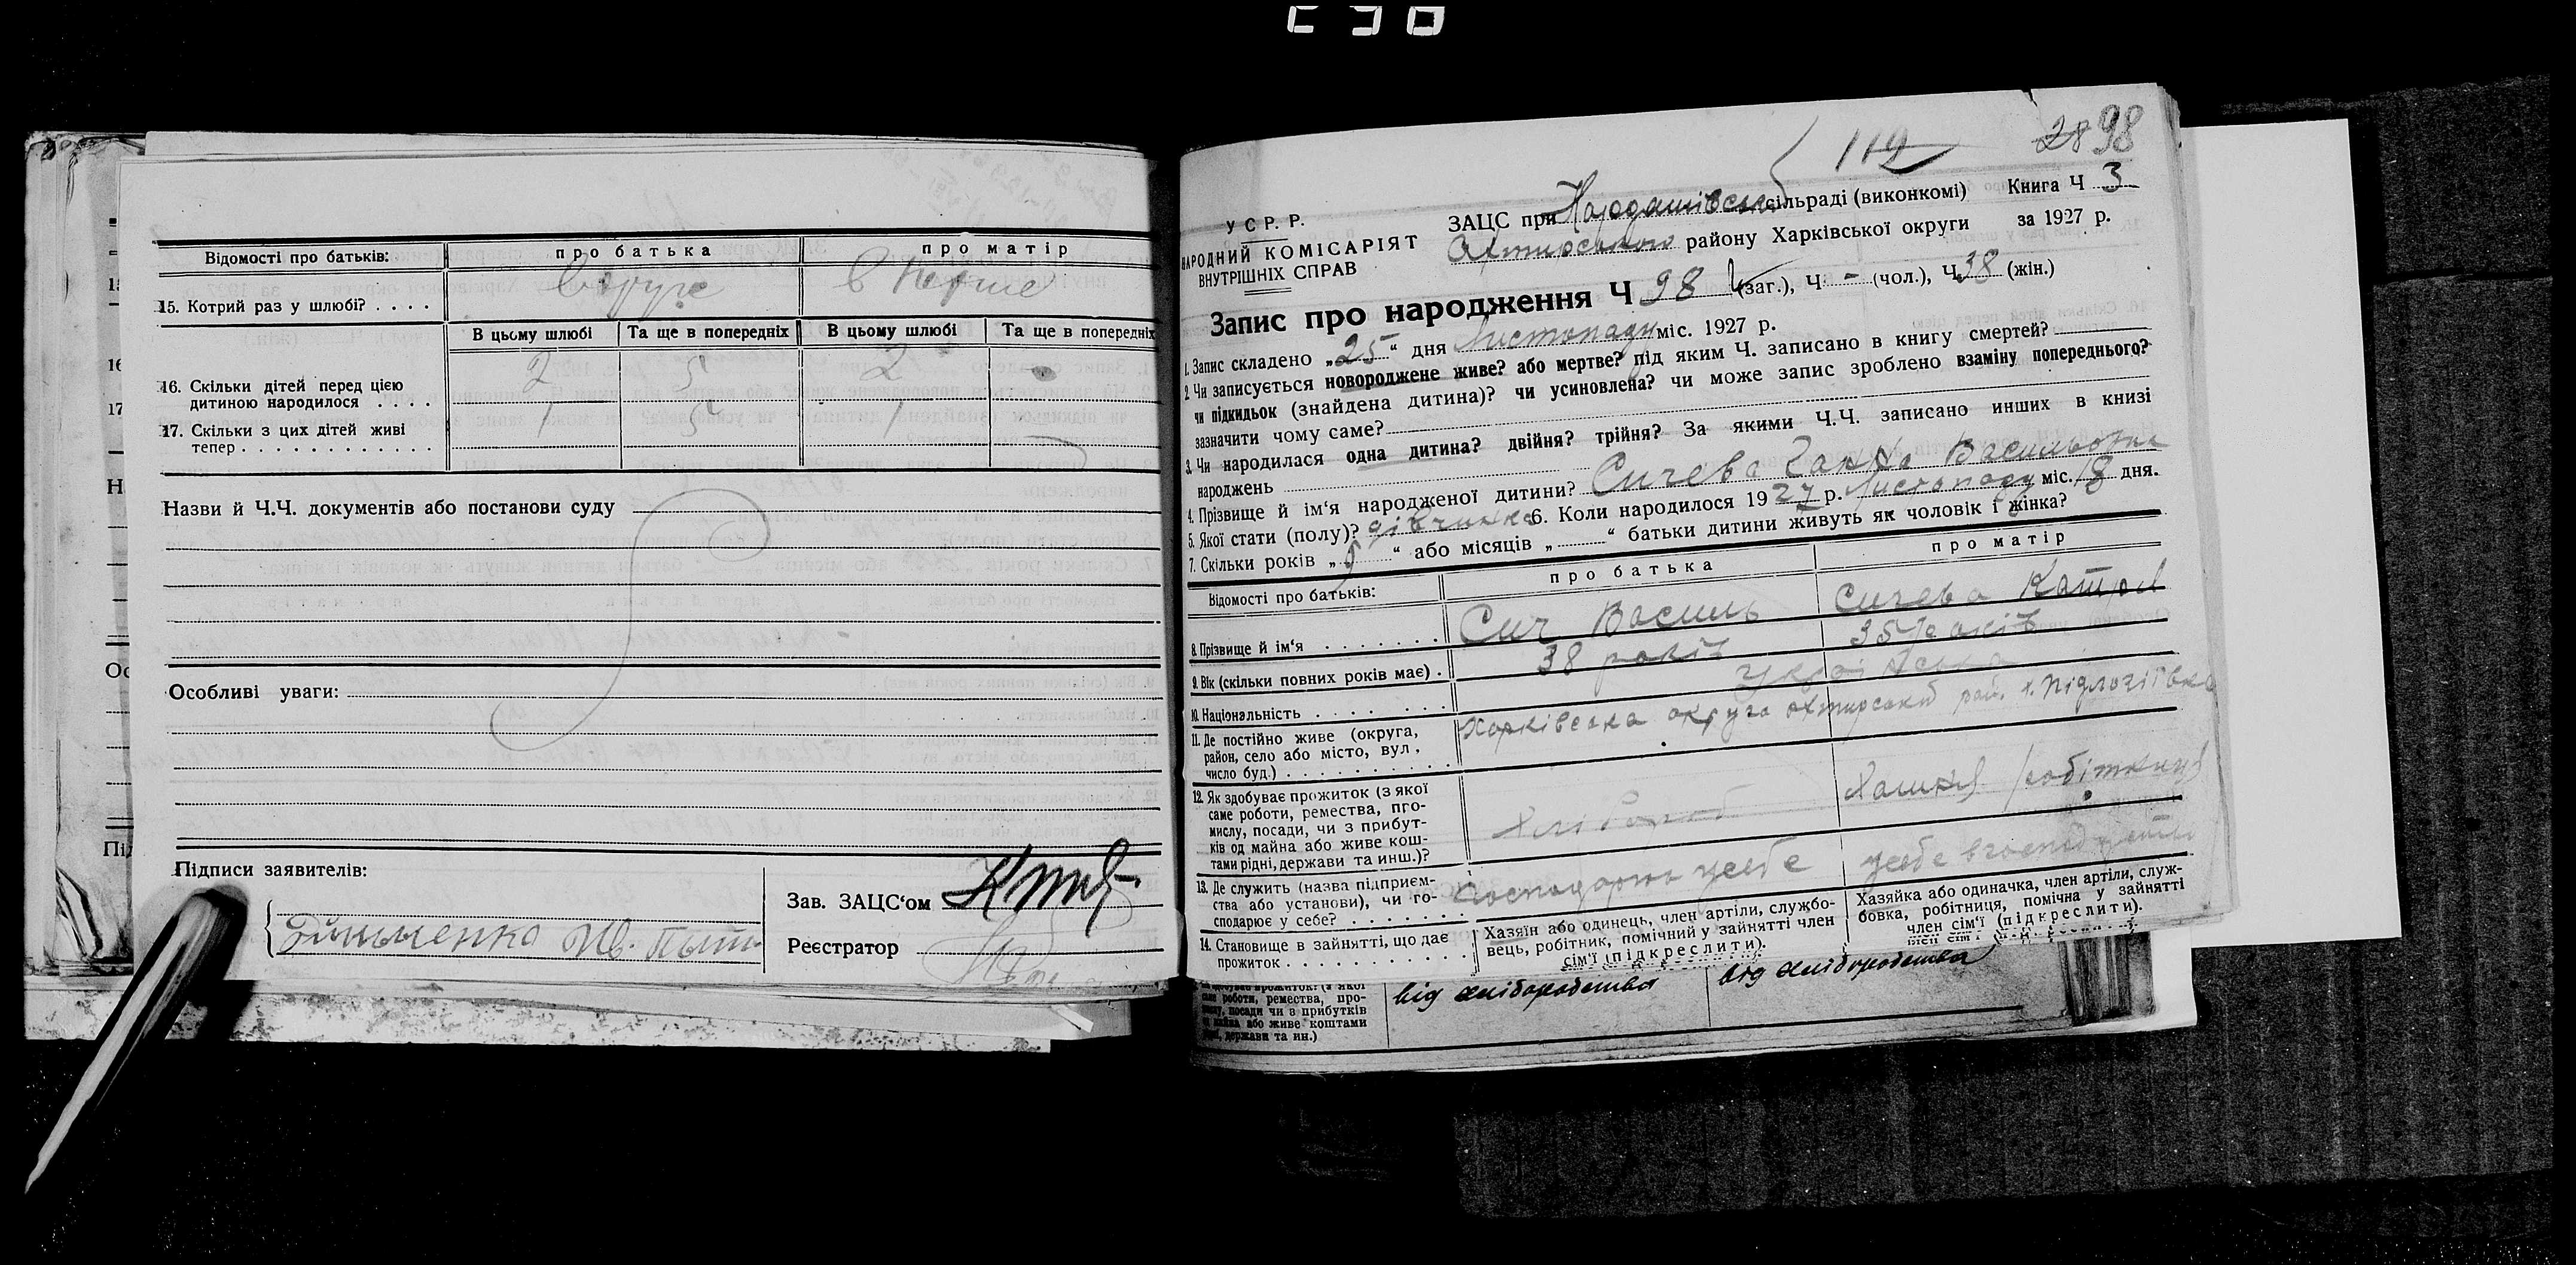 Відомості про батьків: про батька про матір
15. Котрий раз у шлюбі? . . . . Вдруге В перше
В цьому шлюбі Та ще в попередніх В цьому шлюбі Та ще в попередніх
16. Скільки дітей перед цією
дитиною народилося . . . . 2 5 2
17. Скільки з цих дітей живі
тепер . . . . . . . . . . . . . 1 5 1
Назви й Ч.Ч. документів або постанови суду
Особливі уваги:
Підписи заявителів:
Зав. ЗАЦС'ом
Реєстратор
112
28 98
У С Р. Р.
НАРОДНИЙ КОМІСАРІЯТ
ВНУТРІШНІХ СПРАВ
ЗАЦС при сільраді (виконкомі) Книга Ч 3
Охтирського району Харківської округи за 1927 р.
Запис про народження Ч 98 (заг.), Ч - (чол.), Ч 38 (жін.)
1. Запис складено „25“ дня Листопаду міс. 1927 р.
2. Чи записується новороджене живе? або мертве? під яким Ч. записано в книгу смертей?
чи підкидьок (знайдена дитина)? чи усиновлена? чи може запис зроблено взаміну попереднього?
зазначити чому саме?
3. Чи народилася одна дитина? двійня? трійня? За якими Ч.Ч. записано инших в книзі
народжень
4. Прізвище й ім'я народженої дитини? Сичева Ганна Васильовна
5. Якої стати (полу)? дівчинка 6. Коли народилося 1927 р. Листопаду міс. 18 дня.
7. Скільки років „5“ або місяців „ “ батьки дитини живуть як чоловік і жінка?
Відомості про батьків: про батька про матір
8. Прізвище й ім'я . . . . . . . Сич Василь Сичева Катря
9. Вік (скільки повних років має) . 38 років 35 років
10. Національність . . . . . . . . Українська
11. Де постійно живе (округа,
район, село або місто, вул.,
число буд.) . . . . . . . . . . Харківська округа Охтирський рай. х. Підлогіївка
12. Як здобуває прожиток (з якої
саме роботи, ремества, про-
мислу, посади, чи з прибут-
ків од майна або живе кош-
тами рідні, держави та инш.)? Хлібороб робітниця
13. Де служить (назва підприєм-
ства або установи), чи го-
сподарює у себе? . . . . . . Господарює у себе у себе в господарстві
14. Становище в зайнятті, що дає
прожиток . . . . . . . . . . .
Хазяїн або одинець, член артілі, службо-
вець, робітник, помічний у зайнятті член
сім'ї (підкреслити).
Хазяйка або одиначка, член артілі, служ-
бовка, робітниця, помічна у зайнятті
член сім'ї (підкреслити).
від хліборобства від хліборобства
роботи, ремества, про-
посади чи з прибутків
або живе коштами
держави та ин.)